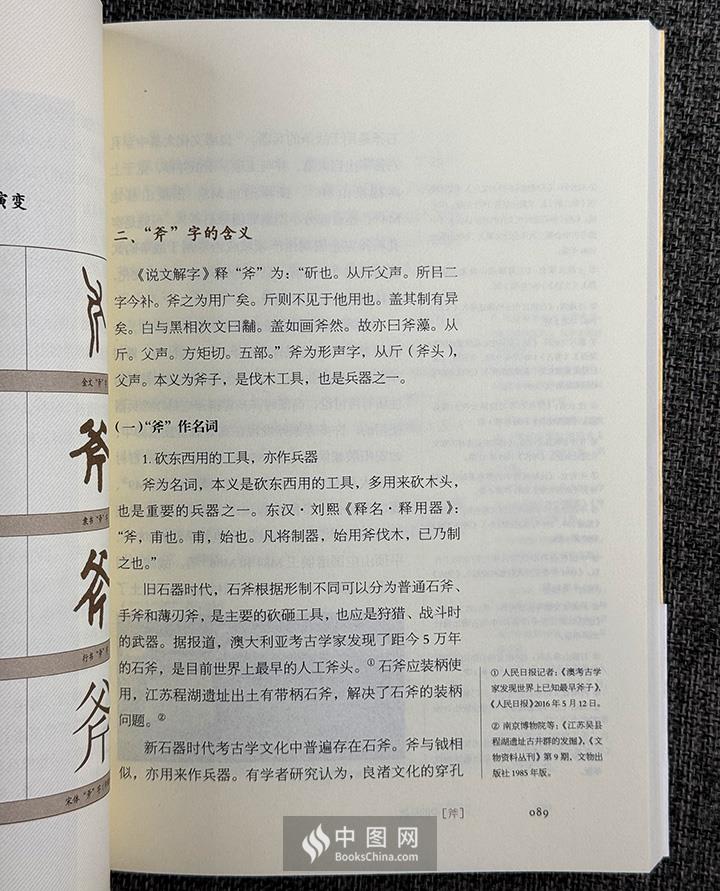 演变
金文“斧”
隶书“斧”
行书“斧”
斧
宋体“斧”
二、“斧”字的含义
《说文解字》释“斧”为：“斫也。从斤父声。所㠯二
字今补。斧之为用广矣。斤则不见于他用也。盖其制有异
矣。白与黑相次文曰黼。盖如画斧然。故亦曰斧藻。从
斤。父声。方矩切。五部。”斧为形声字，从斤（斧头），
父声。本义为斧子，是伐木工具，也是兵器之一。
(一)“斧”作名词
1. 砍东西用的工具，亦作兵器
斧为名词，本义是砍东西用的工具，多用来砍木头，
也是重要的兵器之一。东汉·刘熙《释名·释用器》：
“斧，甫也。甫，始也。凡将制器，始用斧伐木，已乃制
之也。”
旧石器时代，石斧根据形制不同可以分为普通石斧、
手斧和薄刃斧，是主要的砍砸工具，也应是狩猎、战斗时
的武器。据报道，澳大利亚考古学家发现了距今 5 万年
的石斧，是目前世界上最早的人工斧头。①石斧应装柄使
用，江苏程湖遗址出土有带柄石斧，解决了石斧的装柄
问题。②
新石器时代考古学文化中普遍存在石斧。斧与钺相
似，亦用来作兵器。有学者研究认为，良渚文化的穿孔
① 人民日报记者：《澳考古学
家发现世界上已知最早斧子》，
《人民日报》2016 年 5 月 12 日。
② 南京博物院等：《江苏吴县
程湖遗址古井群的发掘》，《文
物资料丛刊》第 9 期，文物出
版社 1985 年版。
[斧] 089
中图网
BooksChina.com